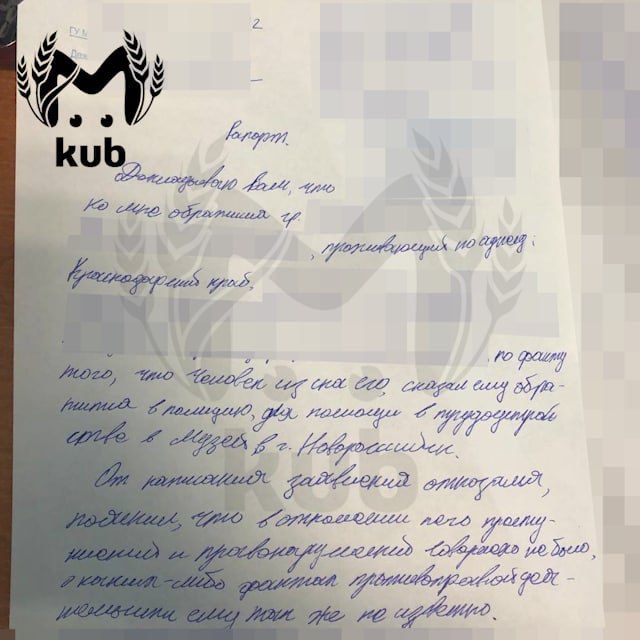 ГУ М
kub
Рапорт.
Докладываю Вам, что
ко мне обратился гр.
, проживающий по адресу:
Краснодарский край,
по факту
того, что человек из сна его, сказал ему обра-
титься в полицию, для помощи в трудоустрой
стве в Музей в г. Новороссийск.
От написания заявления отказался,
пояснил, что в отношении него престу-
плений и правонарушений совершено не было,
о каких-либо фактах противоправной дея-
тельности ему так же не известно.
kub